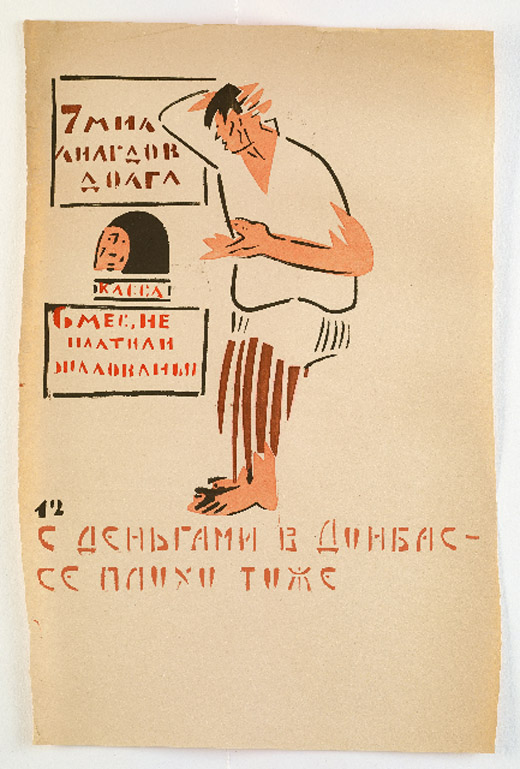 7 МИЛ
ЛИАРДОВ
ДОЛГА
КАССА
6 МЕС. НЕ
ПЛАТИЛИ
ЖАЛОВАНЬЯ
12
С ДЕНЬГАМИ В ДОНБАС-
СЕ ПЛОХО ТОЖЕ